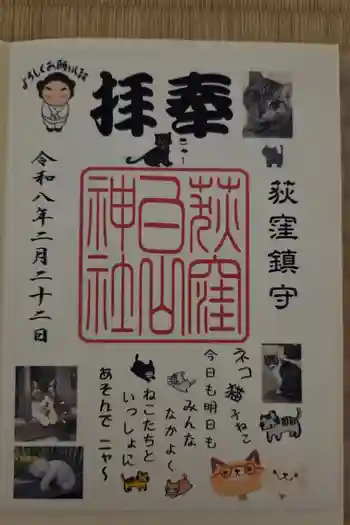 奉拝
よろしくお願いします
ニャー
荻窪鎮守
荻窪
白山
神社
令和八年二月二十二日
ネコ猫ねこ
今日も明日も
みんな
なかよく
ねこたちと
いっしょに
あそんでニャ〜